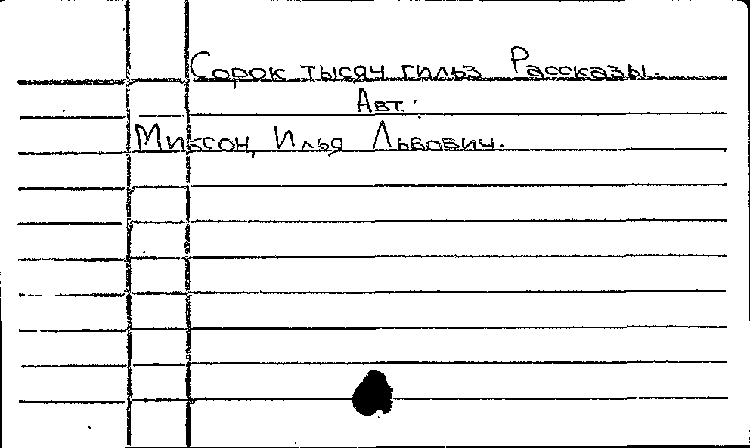 Сорок тысяч гильз Рассказы.
Авт.:
Миксон, Илья Львович.